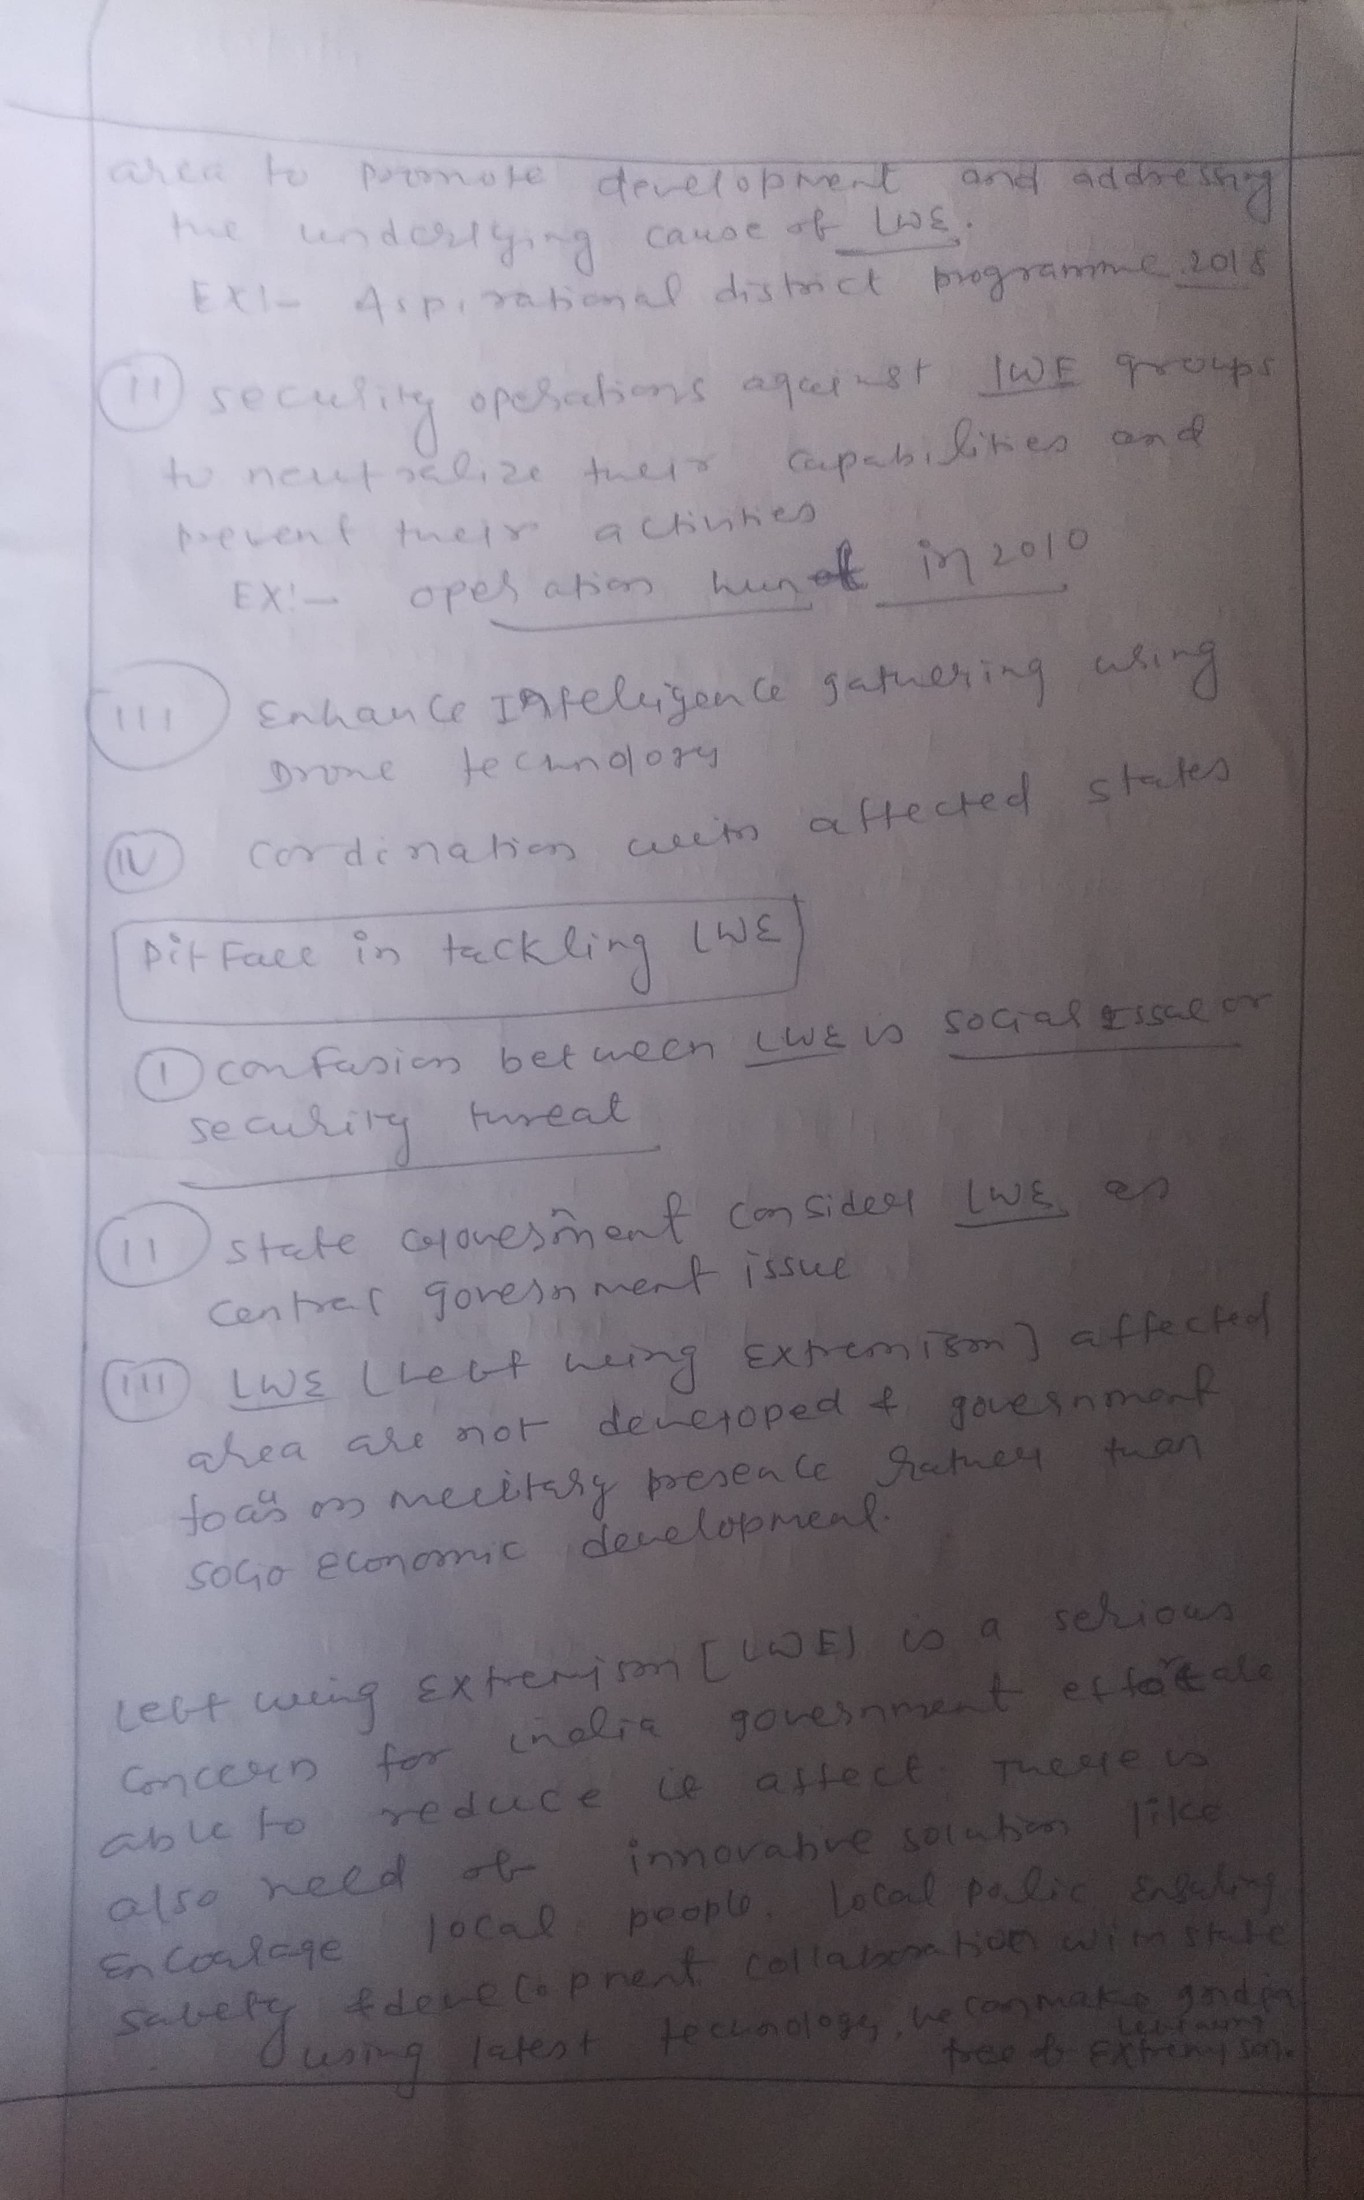 area to promote development and addressing
the underlying cause of LWE.
EX:- Aspirational district programme 2018
(II) security operations against LWE groups
to neutralize their capabilities and
prevent their activities
EX:- operation hunt in 2010
(III) Enhance Intelligence gathering using
Drone technology
(IV) Cordination with affected states
Pit Fall in tackling LWE
(I) confusion between LWE is social issue or
security threat
(II) state government consider LWE as
central government issue
(III) LWE (Left wing Extremism) affected
area are not developed & government
focus on military presence rather than
socio economic development.
Left wing Extremism [LWE] is a serious
concern for india government effort are
able to reduce it affect. There is
also need of innovative solution like
Encourage local people. Local
safety & development. collaboration with state
using latest technology, we can make
left wing
free of Extremism.